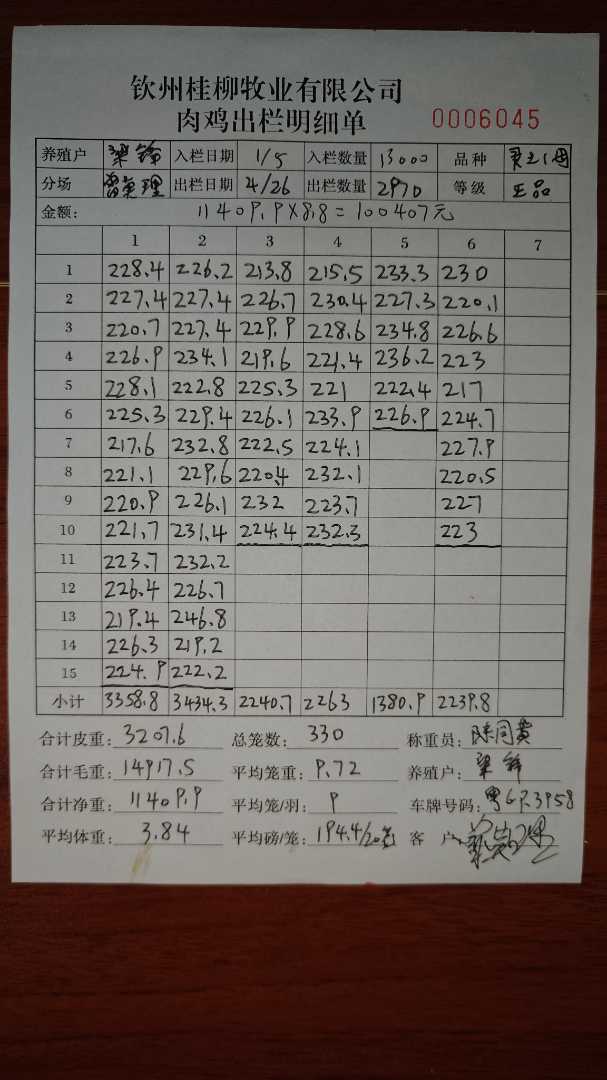 钦州桂柳牧业有限公司
肉鸡出栏明细单 0006045
养殖户 梁锋 入栏日期 1/5 入栏数量 13000 品种
分场 出栏日期 4/26 出栏数量 2970 等级 正品
金额: 11409.9×8.8=100407元
1 2 3 4 5 6 7
1 228.4 226.2 213.8 215.5 233.3 230
2 227.4 227.4 226.7 230.4 227.3 220.1
3 220.7 227.4 229.9 228.6 234.8 226.6
4 226.9 234.1 219.6 221.4 236.2 223
5 228.1 222.8 225.3 221 222.4 217
6 225.3 229.4 226.1 233.9 226.9 224.7
7 217.6 232.8 222.5 224.1 227.9
8 221.1 229.6 220.4 232.1 220.5
9 220.9 226.1 232 223.7 227
10 221.7 231.4 224.4 232.3 223
11 223.7 232.2
12 226.4 226.7
13 219.4 246.8
14 226.3 219.2
15 224.9 222.2
小计 3358.8 3434.3 2240.7 2263 1380.9 2239.8
合计皮重: 3207.6 总笼数: 330 称重员: 陈同黄
合计毛重: 14917.5 平均笼重: 9.72 养殖户: 梁锋
合计净重: 11409.9 平均笼/羽: 9 车牌号码:
平均体重: 3.84 平均磅/笼: 194.4/20笼 客户